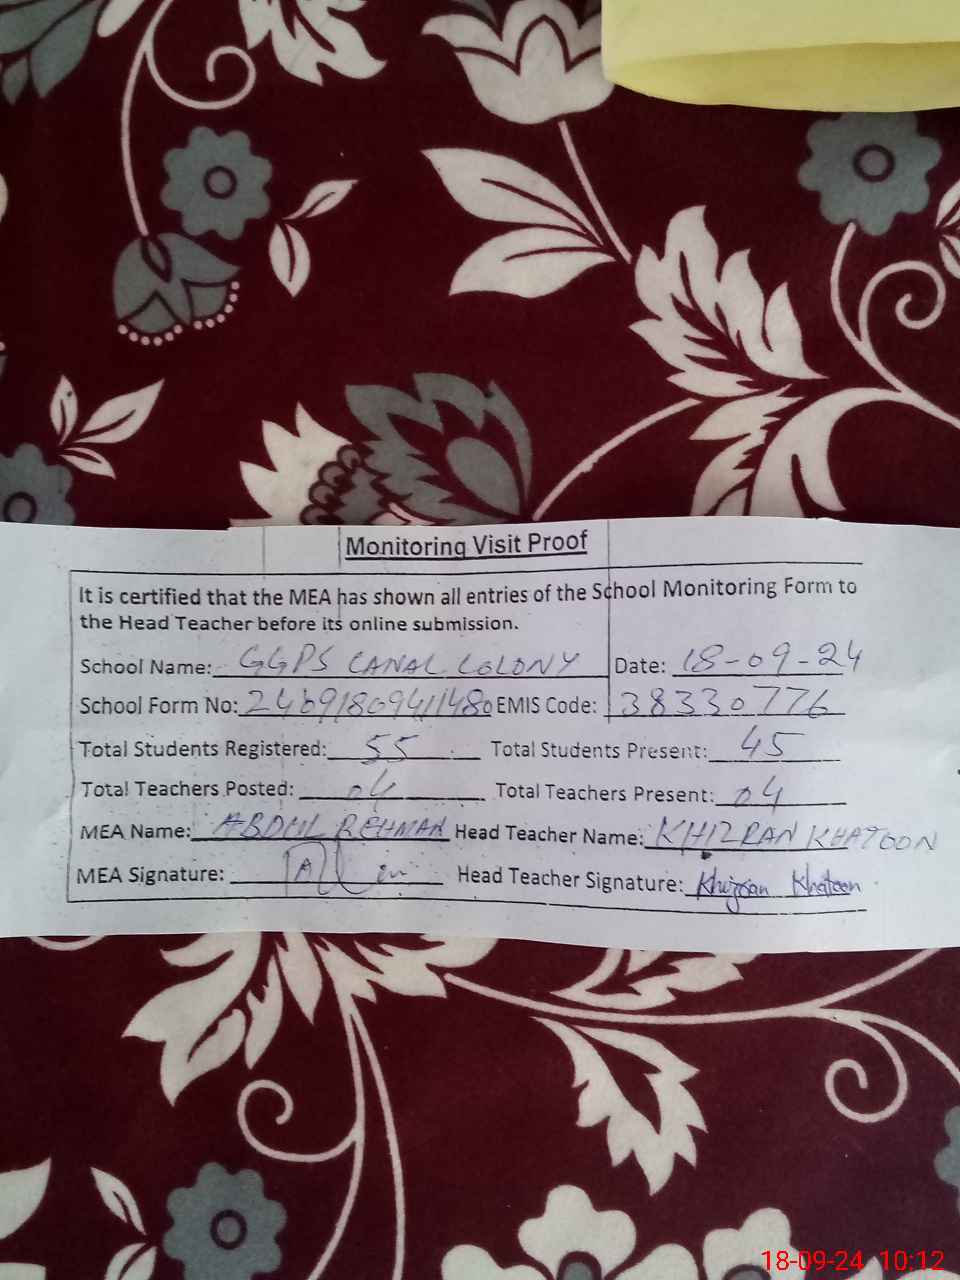 Monitoring Visit Proof
It is certified that the MEA has shown all entries of the School Monitoring Form to
the Head Teacher before its online submission.
School Name: GGPS CANAL COLONY Date: 18-09-24
School Form No: EMIS Code: 38330776
Total Students Registered: 55 Total Students Present: 45
Total Teachers Posted: 04 Total Teachers Present: 04
MEA Name: ABDUL REHMAN Head Teacher Name: KHIZRAN KHATOON
MEA Signature: Head Teacher Signature: Khizran Khatoon
18-09-24 10:12